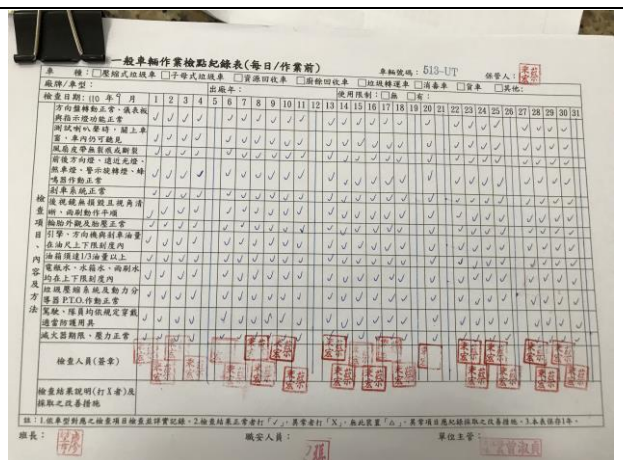 一般車輛作業檢點紀錄表(每日/作業前)
車輛號碼：513-UT 保管人：
車 種：□壓縮式垃圾車 □子母式垃圾車 □資源回收車 □廚餘回收車 □垃圾轉運車 □消毒車 □貨車 □其他:
廠牌/車型： 出廠年： 使用限制：□無 □有：
檢查日期：110 年 9 月 1 2 3 4 5 6 7 8 9 10 11 12 13 14 15 16 17 18 19 20 21 22 23 24 25 26 27 28 29 30 31
檢查項目、內容及方法
方向盤轉動正常、儀表板
與指示燈功能正常
測試喇叭聲時，關上車
窗，車內仍可聽見
風扇皮帶無裂痕或斷裂
前後方向燈、遠近光燈、
煞車燈、警示旋轉燈、蜂
鳴器作動正常
剎車系統正常
後視鏡無損毀且視角清
晰，雨刷動作平順
輪胎外觀及胎壓正常
引擎、方向機與剎車油量
在油尺上下限刻度內
油箱須達1/3油量以上
電瓶水、水箱水、雨刷水
均在上下限刻度內
垃圾壓縮系統及動力分
導器 P.T.O.作動正常
駕駛、隊員均依規定穿戴
適當防護用具
滅火器期限、壓力正常
檢查人員(簽章)
檢查結果說明(打 X 者)及
採取之改善措施
註：1.依車型對應之檢查項目檢查並詳實記錄。2.檢查結果正常者打「✓」，異常者打「X」，無此裝置「△」，異常項目應紀錄採取之改善措施。3.本表保存1年。
班長： 職安人員： 單位主管：